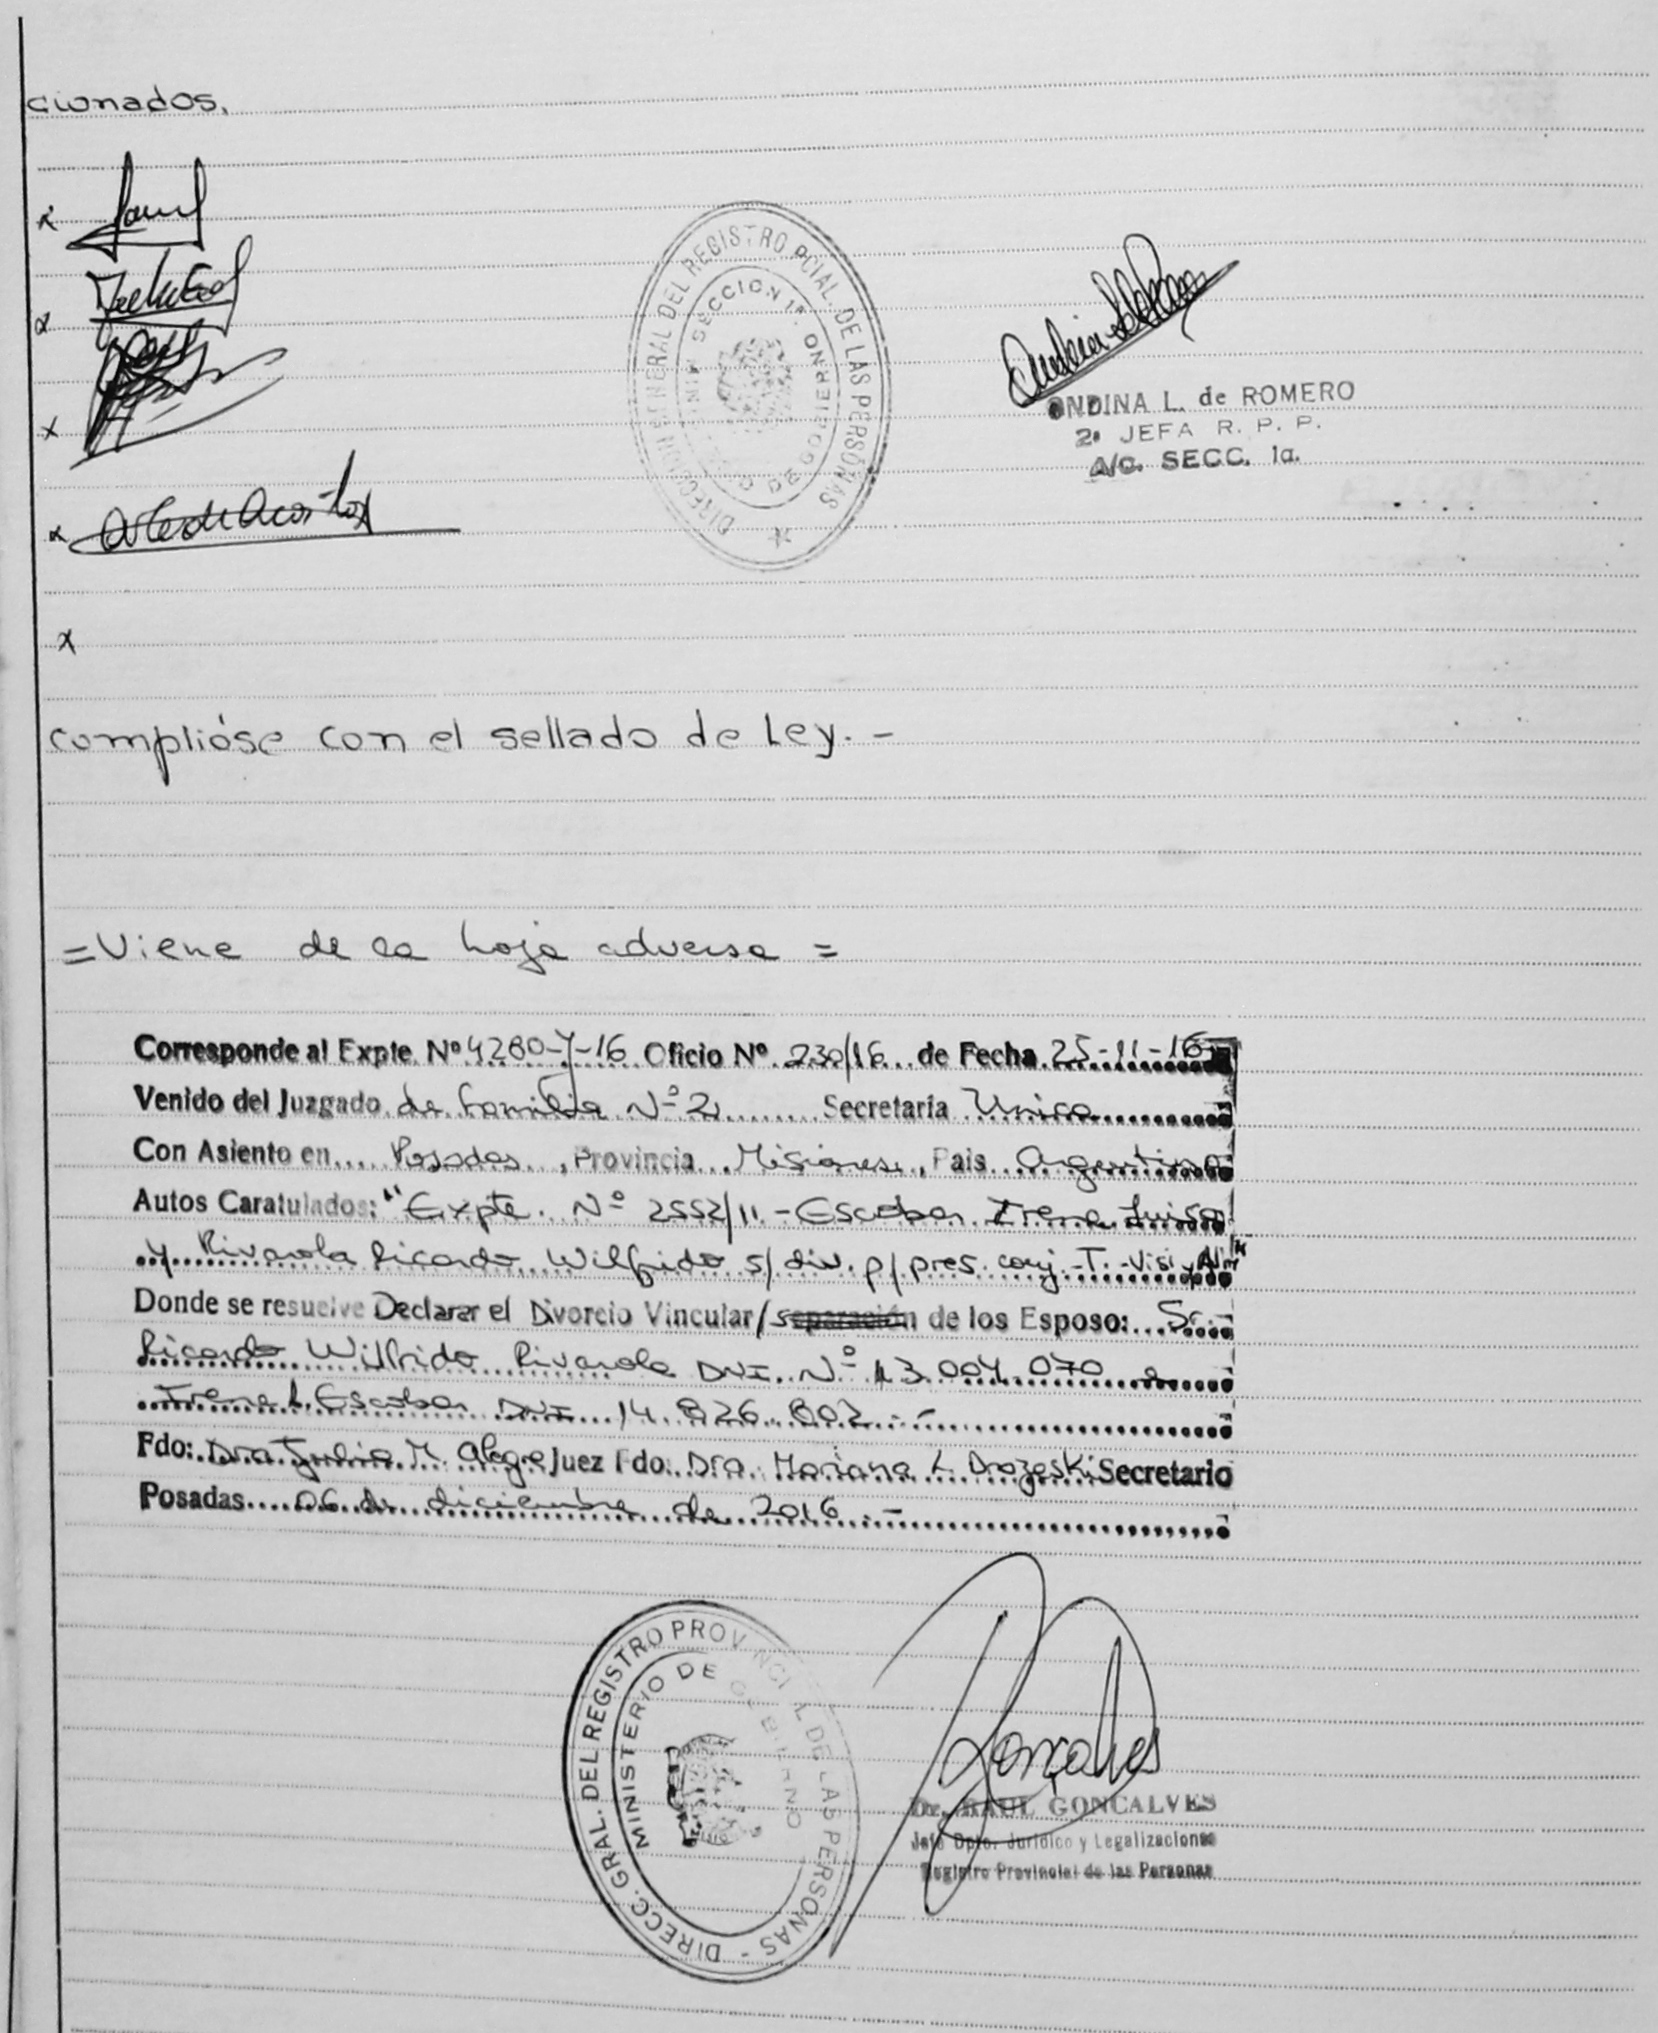 cionados.
DIRECCION GENERAL DEL REGISTRO PCIAL. DE LAS PERSONAS
SECCION 1ª.
ONDINA L. de ROMERO
2ª JEFA R. P. P.
A/C. SECC. 1a.
x
x
x
x
x
Complióse con el sellado de Ley. -
= Viene de la hoja adversa =
Corresponde al Expte. Nº 4280-Y-16 Oficio Nº 230/16 de Fecha 25-11-16
Venido del Juzgado de Familia Nº 2 Secretaría Unica
Con Asiento en Posadas, Provincia Misiones, Pais Argentina
Autos Caratulados: "Expte. Nº 2552/11 - Escobar Irene Luisa
y Rivarola Ricardo Wilfrido s/ div. p/ pres. conj. -T. -Visi y
Donde se resuelve Declarar el Divorcio Vincular/separación de los Esposo: Sr.
Ricardo Wilfrido Rivarola DNI. Nº 13.004.070
Irene L. Escobar DNI 14.826.802.-
Fdo: Dra Julia M. Alegre Juez Fdo: Dra. Mariana L. Drozeski Secretario
Posadas 06 de diciembre de 2016.-
DIRECC. GRAL. DEL REGISTRO PROVINCIAL DE LAS PERSONAS -
MINISTERIO DE GOBIERNO
Goncalves
Dr. RAUL GONCALVES
Jefe Dpto. Jurídico y Legalizaciones
Registro Provincial de las Personas